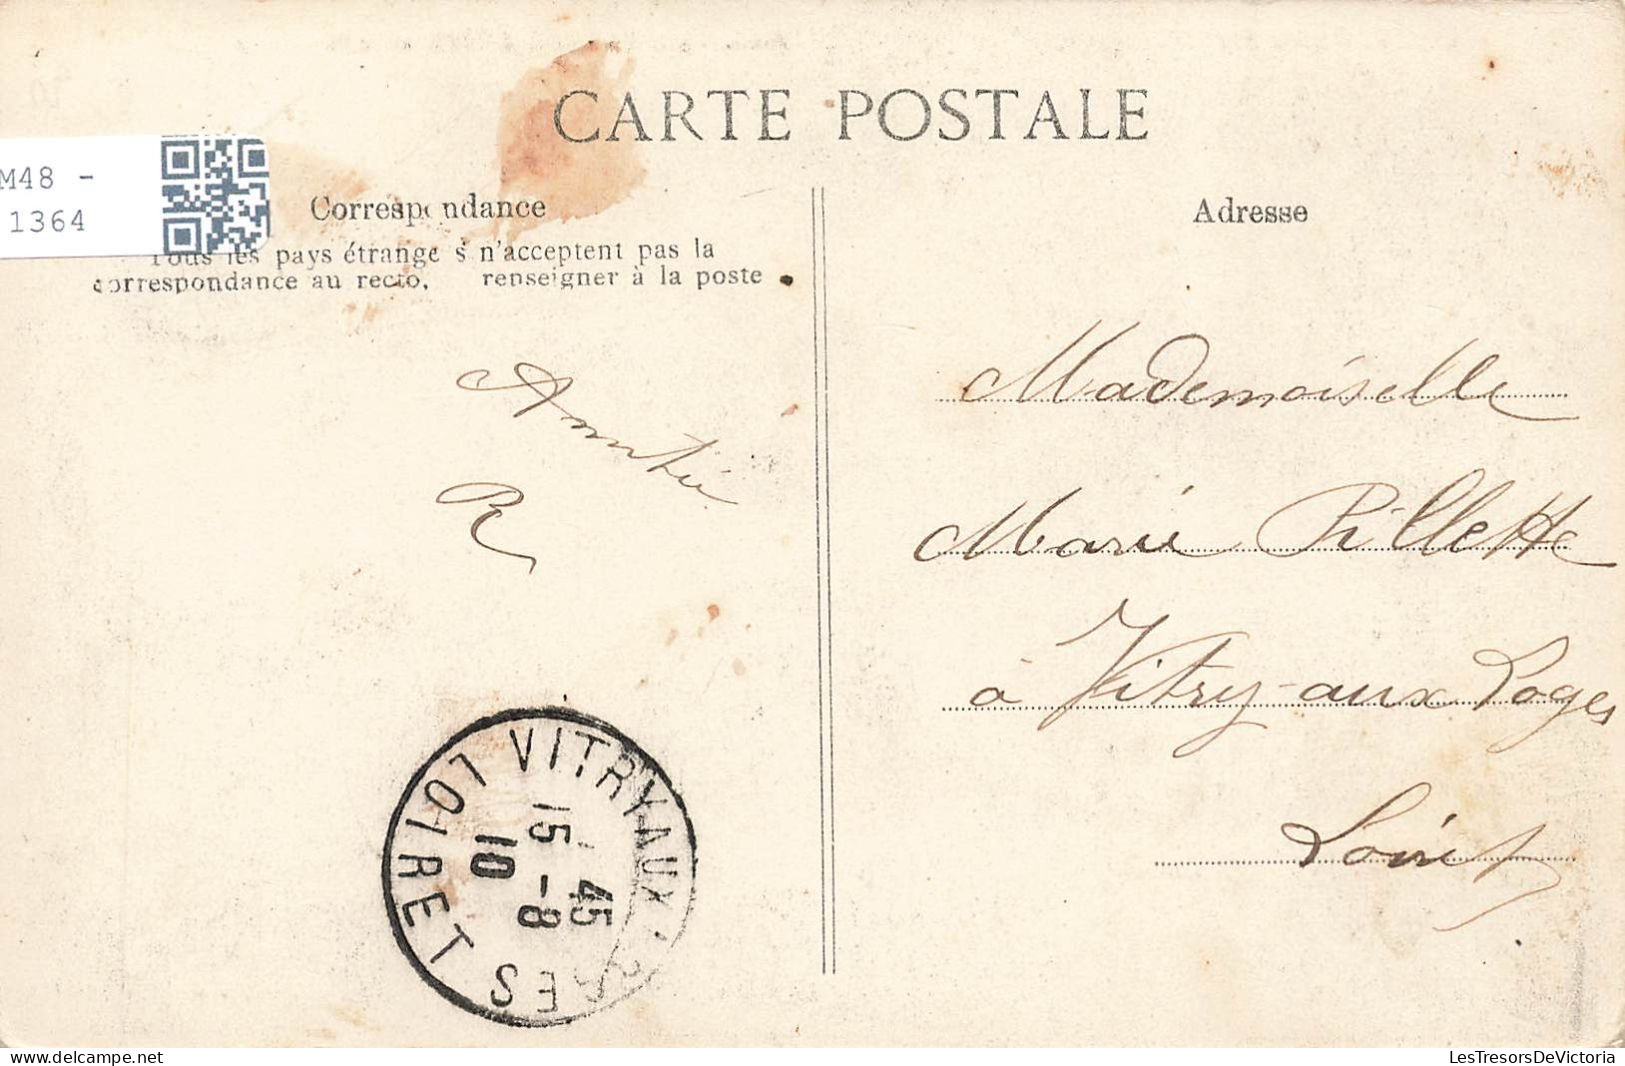 CARTE POSTALE
M48 -
1364
Correspondance
Tous les pays étrangers n'acceptent pas la
correspondance au recto, renseigner à la poste
Adresse
Amitié
R
Mademoiselle
Marie Pillette
à Vitry-aux-Loges
Loiret
VITRY-AUX-LOGES LOIRET
15 45
10 -8
LesTresorsDeVictoria